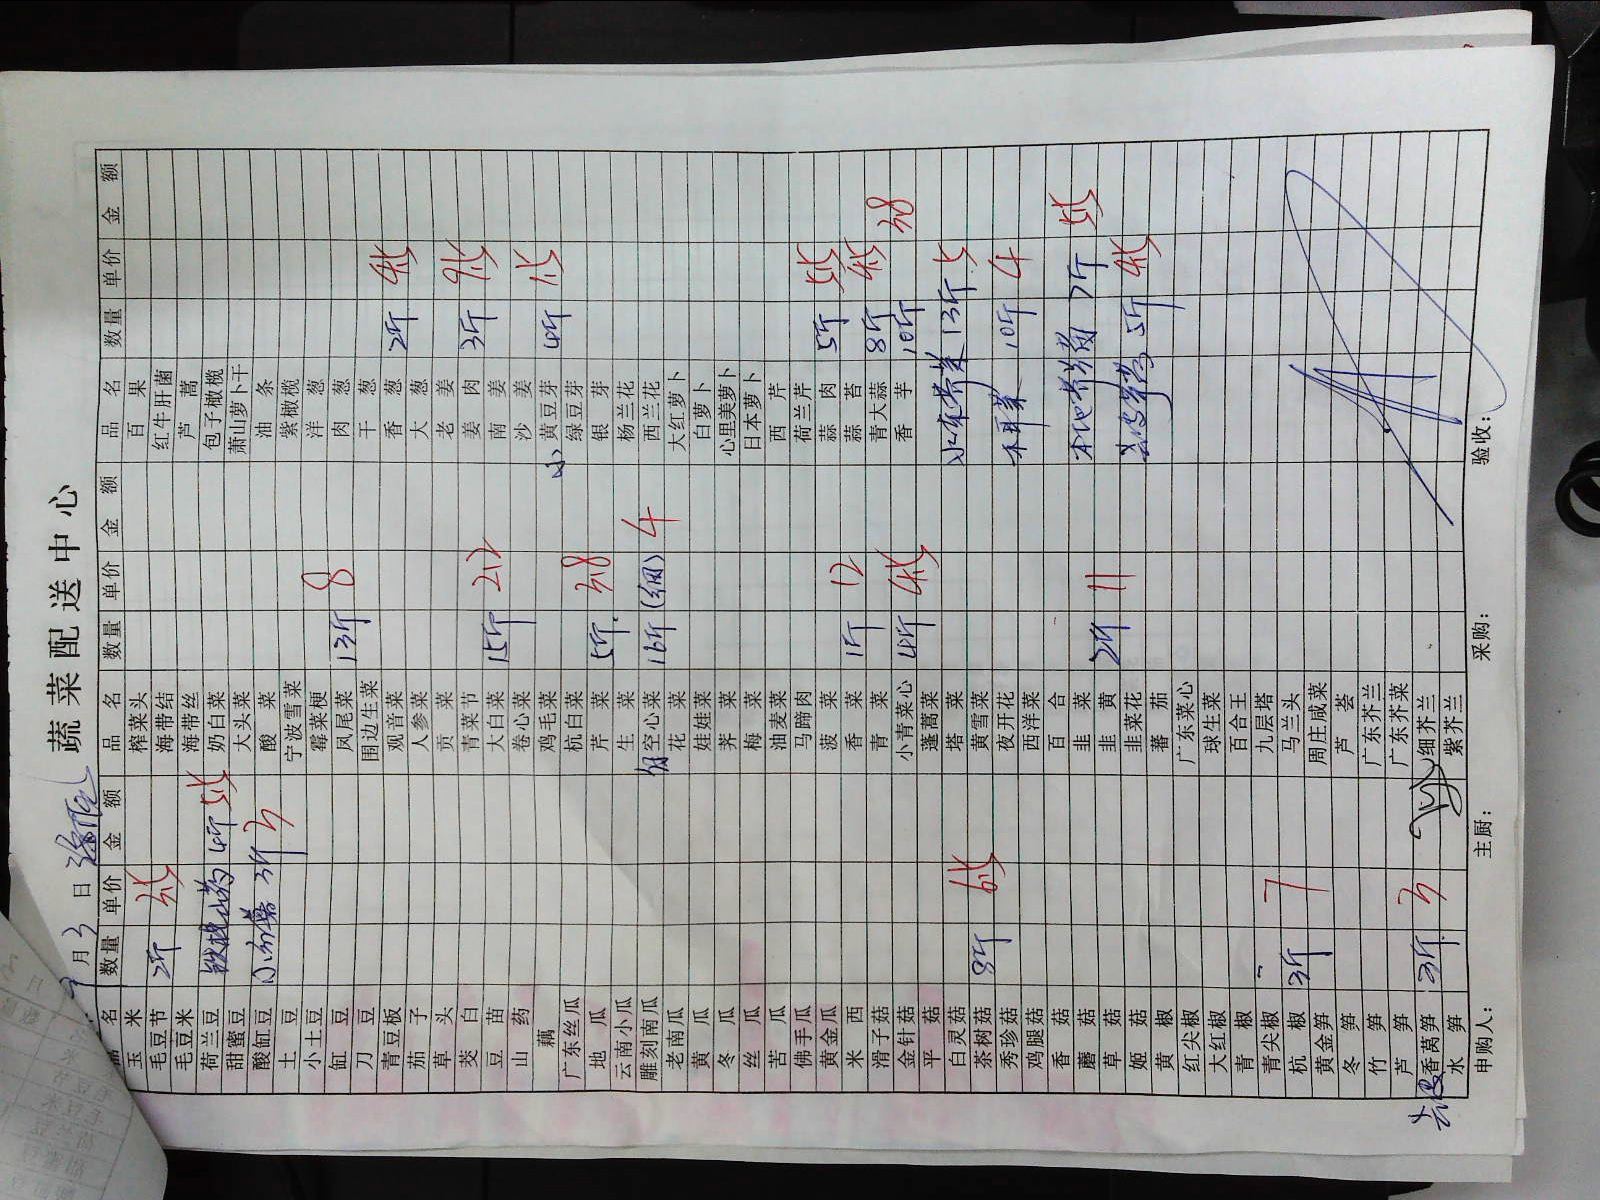 蔬菜配送中心
月 3 日
品名 数量 单价 金额 品名 数量 单价 金额 品名 数量 单价 金额
玉米 榨菜头 百果
毛豆节 2斤 海带结 红牛肝菌
毛豆米 海带丝 芦蒿
荷兰豆 铁棍山药 4斤 奶白菜 包子橄榄
甜蜜豆 大头菜 萧山萝卜干
酸豇豆 3斤 酸菜 油条
土豆 宁波雪菜 紫橄榄
小土豆 霉菜梗 洋葱
缸豆 凤尾菜 13斤 8 肉葱
刀豆 围边生菜 干葱
青豆板 观音菜 香葱 2斤
茄子 人参菜 大葱
草头 贡菜 老姜
茭白 青菜节 姜肉 3斤
豆苗 大白菜 15斤 南姜
山药 卷心菜 沙姜
藕 鸡毛菜 小黄豆芽 4斤
广东丝瓜 杭白菜 绿豆芽
地瓜 芹菜 5斤 3.8 银芽
云南小瓜 生菜 杨兰花
雕刻南瓜 空心菜 16斤(细) 4 西兰花
老南瓜 花菜 大红萝卜
黄瓜 娃娃菜 白萝卜
冬瓜 荠菜 心里美萝卜
丝瓜 梅菜 日本萝卜
苦瓜 油麦菜 西芹
佛手瓜 马蹄肉 荷兰芹
黄金瓜 菠菜 蒜肉 5斤
米西 香菜 1斤 12 蒜苔
滑子菇 青菜 青大蒜 8斤
金针菇 小青菜心 4斤 香芋 10斤 3.8
平菇 蓬蒿菜
白灵菇 塔菜 13斤
茶树菇 8斤 黄雪菜
秀珍菇 夜开花 木耳菜 10斤 4
鸡腿菇 西洋菜
香菇 百合
蘑菇 韭菜 7斤
草菇 韭黄 2斤 11
姬菇 韭菜花 5斤
黄椒 蕃茄
红尖椒 广东菜心
大红椒 球生菜
青椒 百合王
青尖椒 九层塔
杭椒 3斤 7 马兰头
黄金笋 周庄咸菜
冬笋 芦荟
竹笋 广东芥兰
芦笋 广东芥菜
香莴笋 3斤 细芥兰
水笋 紫芥兰
申购人： 主厨： 采购： 验收：